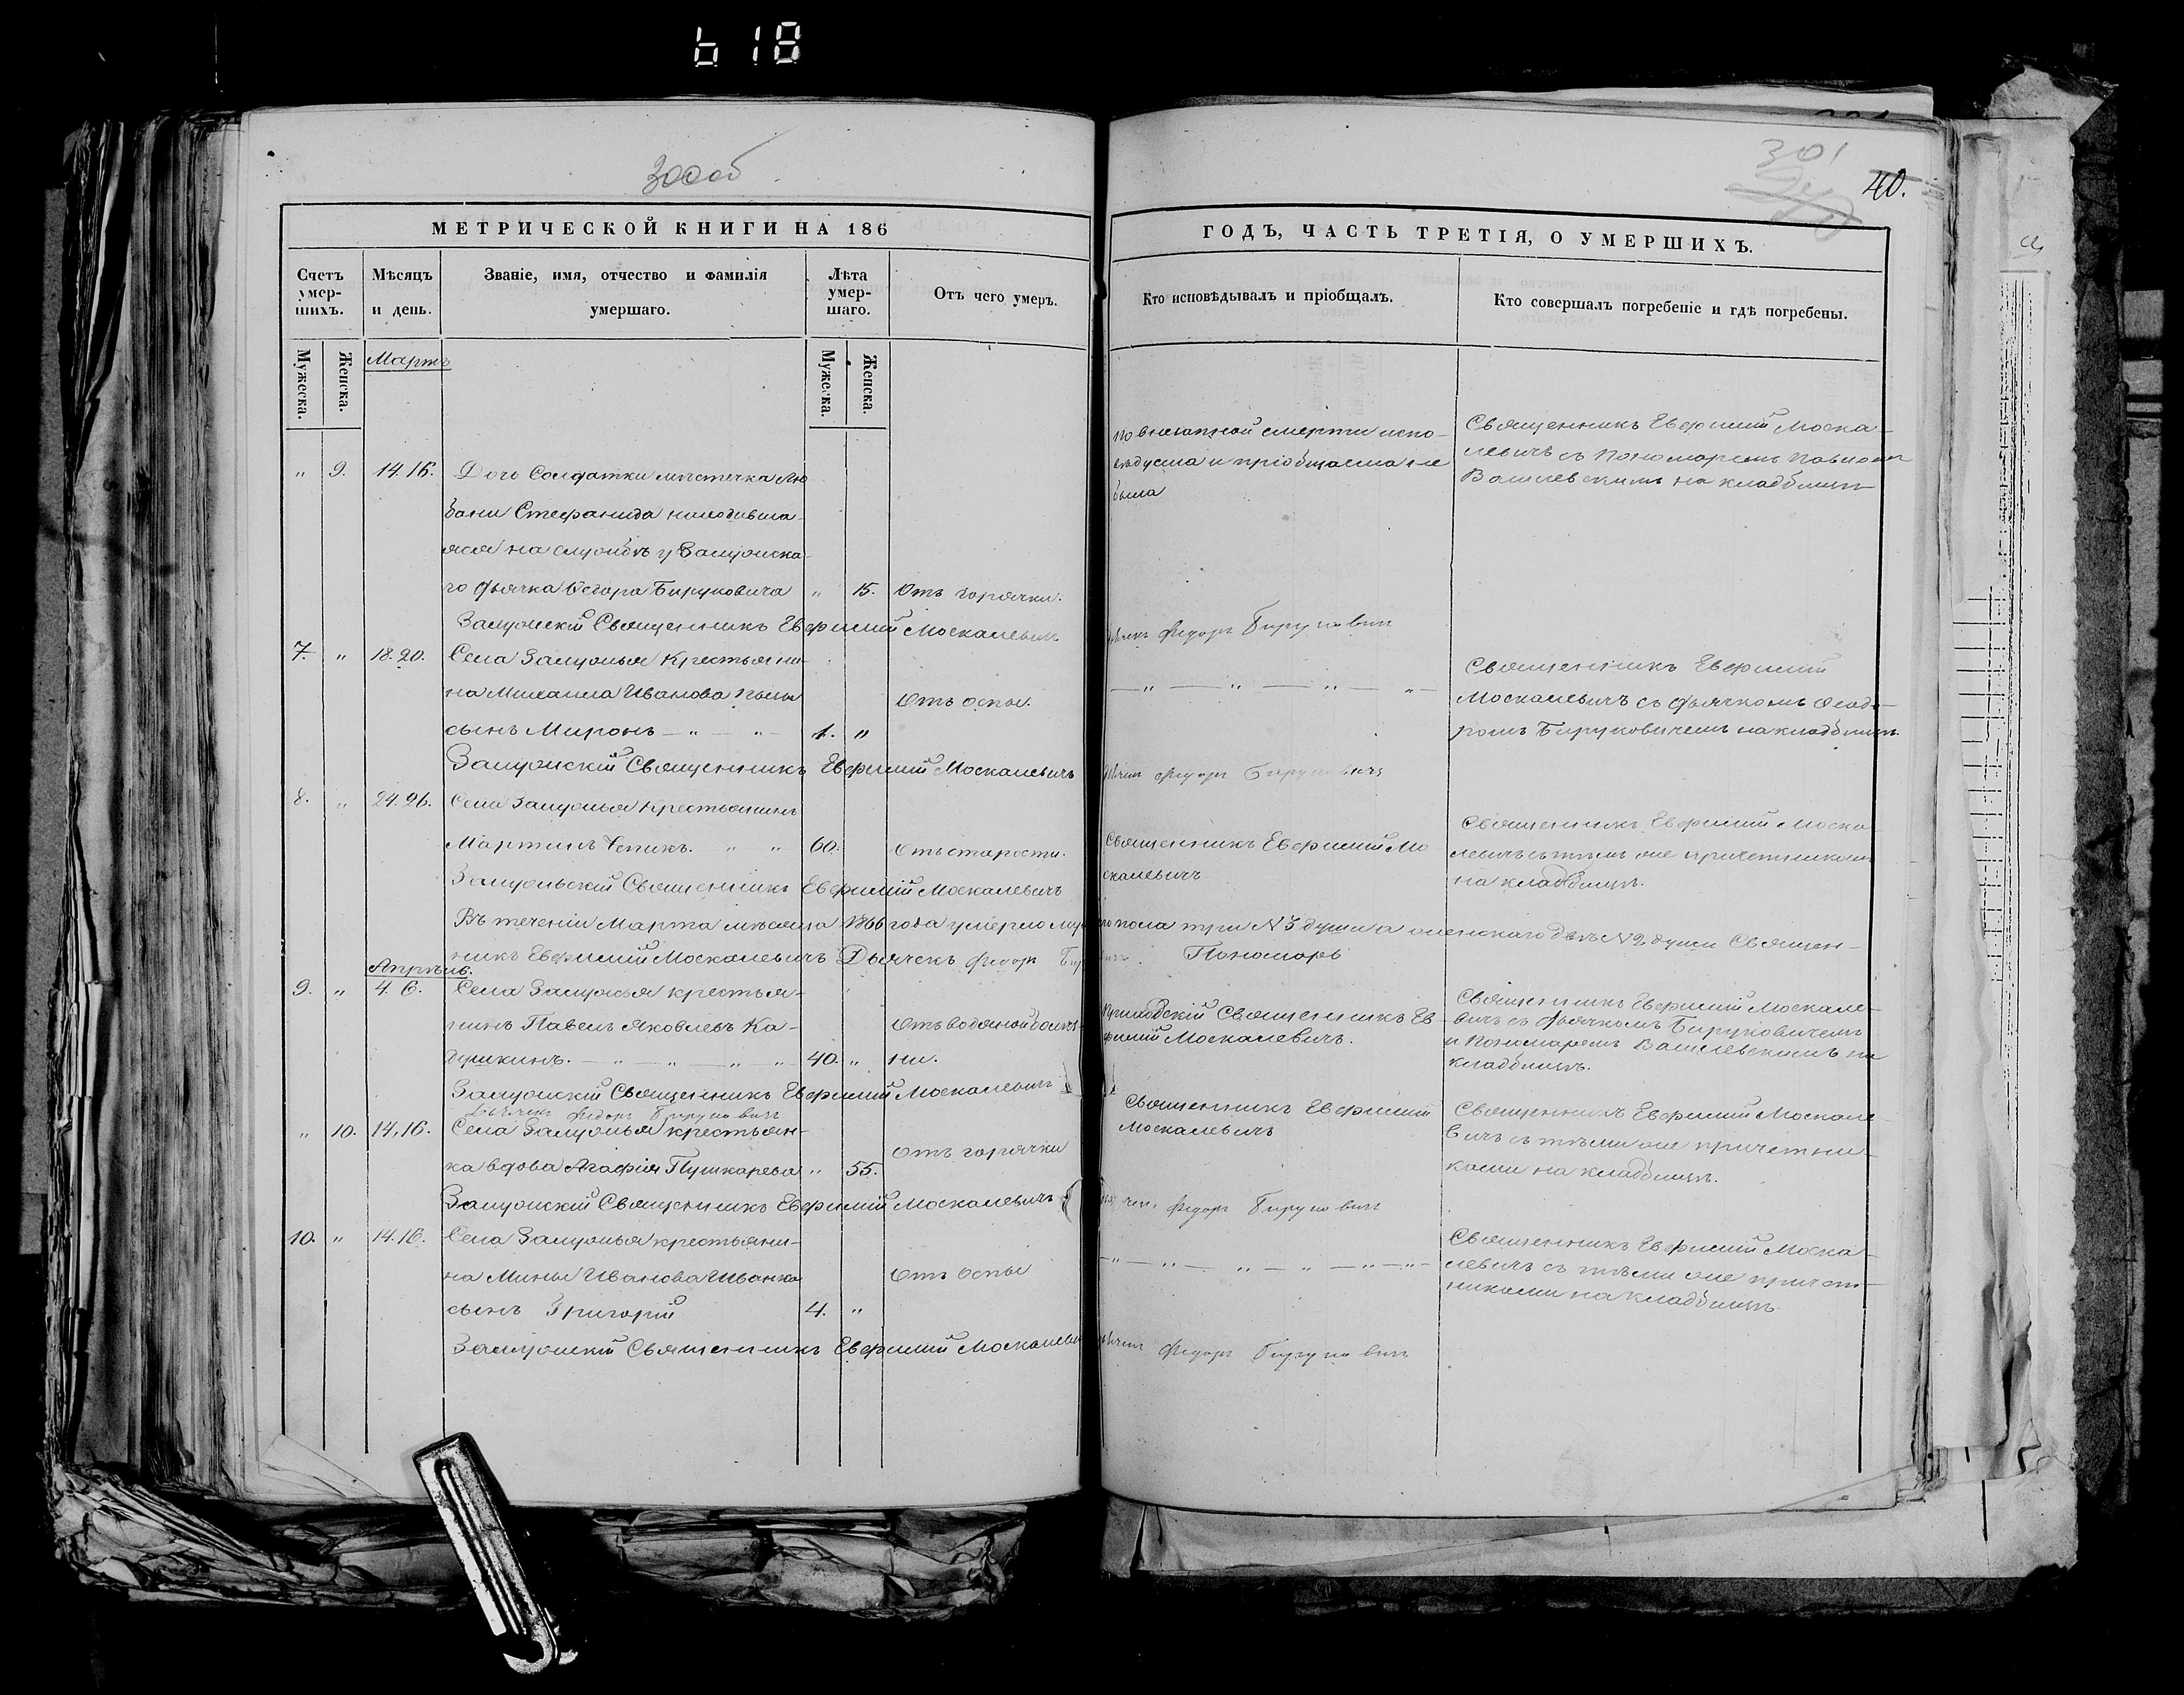 618
300об
301
40.
МЕТРИЧЕСКОЙ КНИГИ НА 186
ГОДЪ, ЧАСТЬ ТРЕТІЯ, О УМЕРШИХЪ.
Счетъ умер-шихъ.
Мѣсяцъ и день.
Званіе, имя, отчество и фамилія умершаго.
Лѣта умер-шаго.
Отъ чего умеръ.
Кто исповѣдывалъ и пріобщалъ.
Кто совершалъ погребеніе и гдѣ погребены.
Мужеска.
Женска.
Мартъ
Мужеска.
Женска.
„ 9. 14. 16. Дочь Солдатки мѣстечка Лю
бани Стефанида находивша-
яся на службѣ у
го дьячка Ѳедора Бируковича „ 15. Отъ горячки.
по внезапной смерти испо-
вѣдуема и пріобщаема не
была
Священникъ Евфимій Моска-
левичъ съ Пономаремъ Павломъ
Василевскимъ на кладбищѣ
Священникъ Евфимій Москалевичъ
Федоръ Бируковичъ
7. „ 18. 20. Села Крестьяни-
на Михаила Иванова
сынъ Миронъ — „ — „ — 1. „
Отъ оспы.
— „ — „ — „ „ —
Священникъ Евфимій
Москалевичъ съ дьячкомъ Ѳеодо-
ромъ Бируковичемъ на кладбищѣ.
Священникъ Евфимій Москалевичъ
Федоръ Бируковичъ
8. „ 24. 26. Села Крестьянинъ
Мартинъ „ „ 60. Отъ старости.
Священникъ Евфимій Мо
скалевичъ
Священникъ Евфимій Моска-
левичъ съ тѣмъ же причетникомъ
на кладбищѣ.
Священникъ Евфимій Москалевичъ
Въ теченіи Марта мѣсяца 1866 года умерло муж го пола три № 3 души а женскаго двѣ № 2 души Священ-
никъ Евфимій Москалевичъ Дьячекъ Федоръ Бируковичъ. Пономарь
Апрѣль.
9. „ 4. 6. Села крестья-
нинъ Павелъ Яковлевъ Ка-
душкинъ. — „ — „ „ „ 40. „
Отъ водяной болѣз-
ни.
Священникъ Ев-
фимій Москалевичъ.
Священникъ Евфимій Москале-
вичъ съ дьячкомъ Бируковичемъ
и Пономаремъ Василевскимъ на
кладбищѣ.
Священникъ Евфимій Москалевичъ
Дьячекъ Федоръ Бируковичъ
„ 10. 14, 16. Села крестьян-
ка вдова Агафія Пушкарева „ 55.
Отъ горячки
Священникъ Евфимій
Москалевичъ
Священникъ Евфимій Москале-
вичъ съ тѣми же причетни-
ками на кладбищѣ.
Священникъ Евфимій Москалевичъ
Федоръ Бируковичъ
10. „ 14. 16. Села крестьяни-
на Мины Иванова Иванка
сынъ Григорій 4. „
Отъ оспы
— „ — „ — „ — „ — „ — „ —
Священникъ Евфимій Моска-
левичъ съ тѣми же причет-
никами на кладбищѣ.
Священникъ Евфимій Москалевичъ
Федоръ Бируковичъ